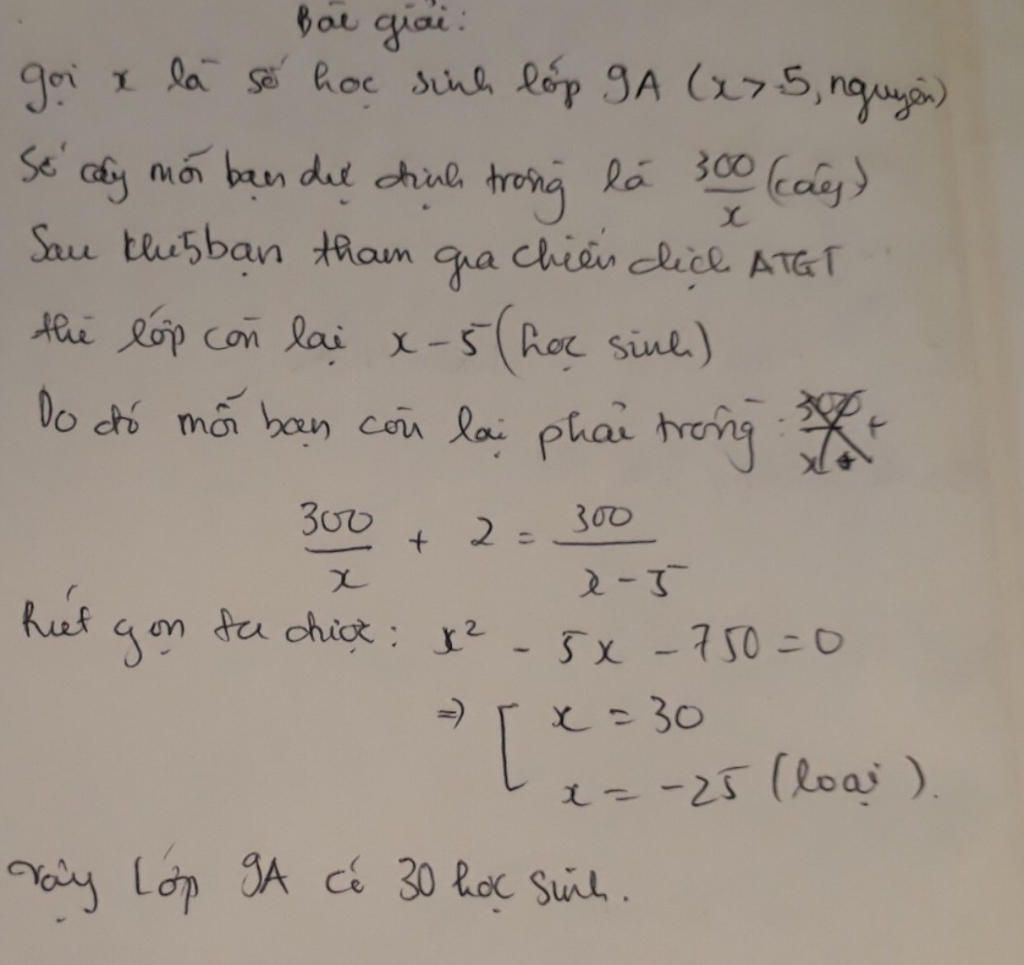 Bài giải:
gọi x là số học sinh lớp 9A (x > 5, nguyên)
Số cây mỗi bạn dự định trồng là 300/x (cây)
Sau khi 5 bạn tham gia chiến dịch ATGT
thì lớp còn lại x - 5 (học sinh)
Do đó mỗi bạn còn lại phải trồng:
300/x + 2 = 300/x - 5
Rút gọn ta được: x² - 5x - 750 = 0
⇒ [ x = 30
x = -25 (loại).
Vậy Lớp 9A có 30 học sinh.